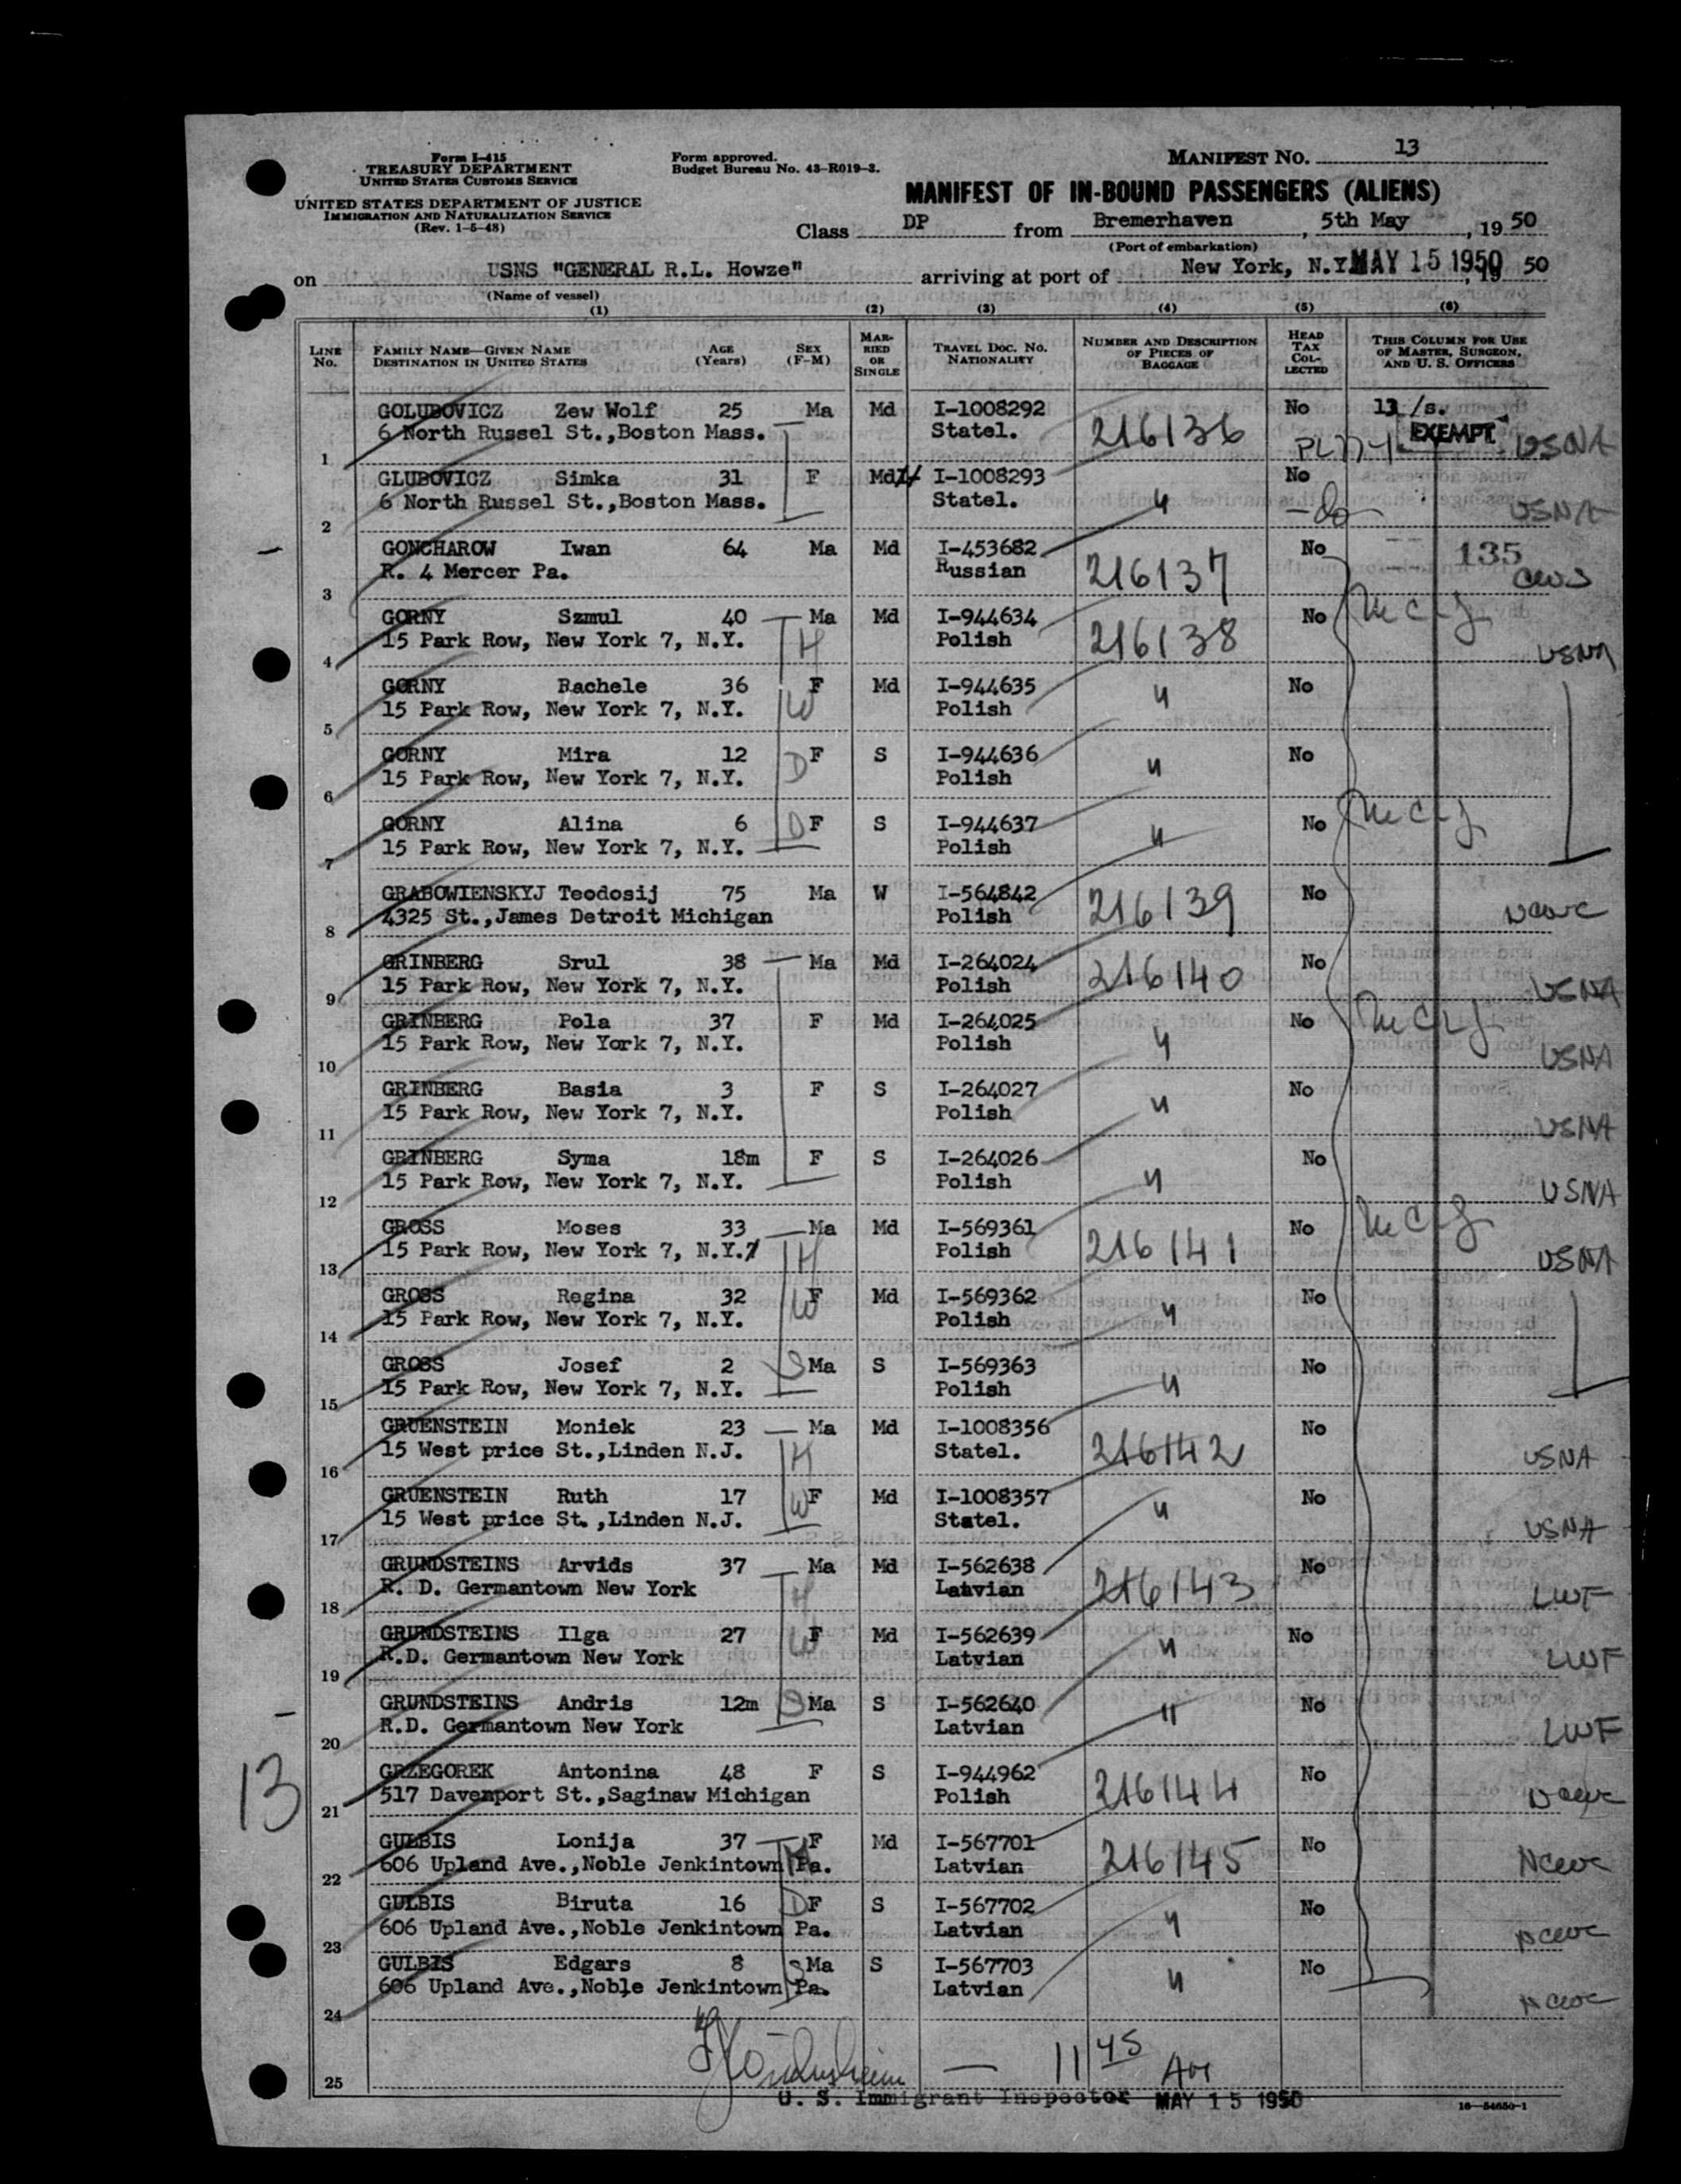 Form I-415
TREASURY DEPARTMENT
UNITED STATES CUSTOMS SERVICE
UNITED STATES DEPARTMENT OF JUSTICE
IMMIGRATION AND NATURALIZATION SERVICE
(Rev. 1-5-48)
Form approved.
Budget Bureau No. 43-R019-3.
MANIFEST NO. 13
MANIFEST OF IN-BOUND PASSENGERS (ALIENS)
Class DP from Bremerhaven, 5th May, 1950
(Port of embarkation)
on USNS "GENERAL R.L. Howze" arriving at port of New York, N.Y. MAY 15 1950, 19 50
(Name of vessel)
(1) (2) (3) (4) (5) (6)
LINE No. FAMILY NAME—GIVEN NAME DESTINATION IN UNITED STATES AGE (Years) SEX (F-M) MARRIED OR SINGLE TRAVEL DOC. NO. NATIONALITY NUMBER AND DESCRIPTION OF PIECES OF BAGGAGE HEAD TAX COLLECTED THIS COLUMN FOR USE OF MASTER, SURGEON, AND U. S. OFFICERS
GOLUBOVICZ Zew Wolf 25 Ma Md I-1008292 No 13 /s.
1 6 North Russel St.,Boston Mass. Statel. 216136 EXEMPT USNA
GLUBOVICZ Simka 31 F Md I-1008293 No
2 6 North Russel St.,Boston Mass. Statel. " -do- USNA
GONCHAROW Iwan 64 Ma Md I-453682 No 135
3 R. 4 Mercer Pa. Russian 216137 CWS
GORNY Szmul 40 Ma Md I-944634 No
4 15 Park Row, New York 7, N.Y. H Polish 216138 USNA
GORNY Rachele 36 F Md I-944635 No
5 15 Park Row, New York 7, N.Y. W Polish "
GORNY Mira 12 F S I-944636 No
6 15 Park Row, New York 7, N.Y. D Polish "
GORNY Alina 6 D F S I-944637 No
7 15 Park Row, New York 7, N.Y. Polish "
GRABOWIENSKYJ Teodosij 75 Ma W I-564842 No
8 4325 St.,James Detroit Michigan Polish 216139 NCWC
GRINBERG Srul 38 Ma Md I-264024 No
9 15 Park Row, New York 7, N.Y. Polish 216140 USNA
GRINBERG Pola 37 F Md I-264025 No
10 15 Park Row, New York 7, N.Y. Polish " USNA
GRINBERG Basia 3 F S I-264027 No
11 15 Park Row, New York 7, N.Y. Polish " USNA
GRINBERG Syma 18m F S I-264026 No
12 15 Park Row, New York 7, N.Y. Polish " USNA
GROSS Moses 33 Ma Md I-569361 No
13 15 Park Row, New York 7, N.Y. H Polish 216141 USNA
GROSS Regina 32 F Md I-569362 No
14 15 Park Row, New York 7, N.Y. W Polish "
GROSS Josef 2 S Ma S I-569363 No
15 15 Park Row, New York 7, N.Y. Polish "
GRUENSTEIN Moniek 23 Ma Md I-1008356 No
16 15 West price St.,Linden N.J. H Statel. 216142 USNA
GRUENSTEIN Ruth 17 W F Md I-1008357 No
17 15 West price St.,Linden N.J. Statel. " USNA
GRUNDSTEINS Arvids 37 Ma Md I-562638 No
18 R. D. Germantown New York H Latvian 216143 LWF
GRUNDSTEINS Ilga 27 W F Md I-562639 No
19 R.D. Germantown New York Latvian " LWF
GRUNDSTEINS Andris 12m S Ma S I-562640 No
20 R.D. Germantown New York Latvian " LWF
GRZEGOREK Antonina 48 F S I-944962 No
21 517 Davenport St.,Saginaw Michigan Polish 216144 NCWC
13
GULBIS Lonija 37 F Md I-567701 No
22 606 Upland Ave.,Noble Jenkintown Pa. Latvian 216145 NCWC
GULBIS Biruta 16 D F S I-567702 No
23 606 Upland Ave.,Noble Jenkintown Pa. Latvian " NCWC
GULBIS Edgars 8 S Ma S I-567703 No
24 606 Upland Ave.,Noble Jenkintown Pa. Latvian " NCWC
25 — 11 45 AM
U. S. Immigrant Inspector MAY 15 1950
16—54650-1